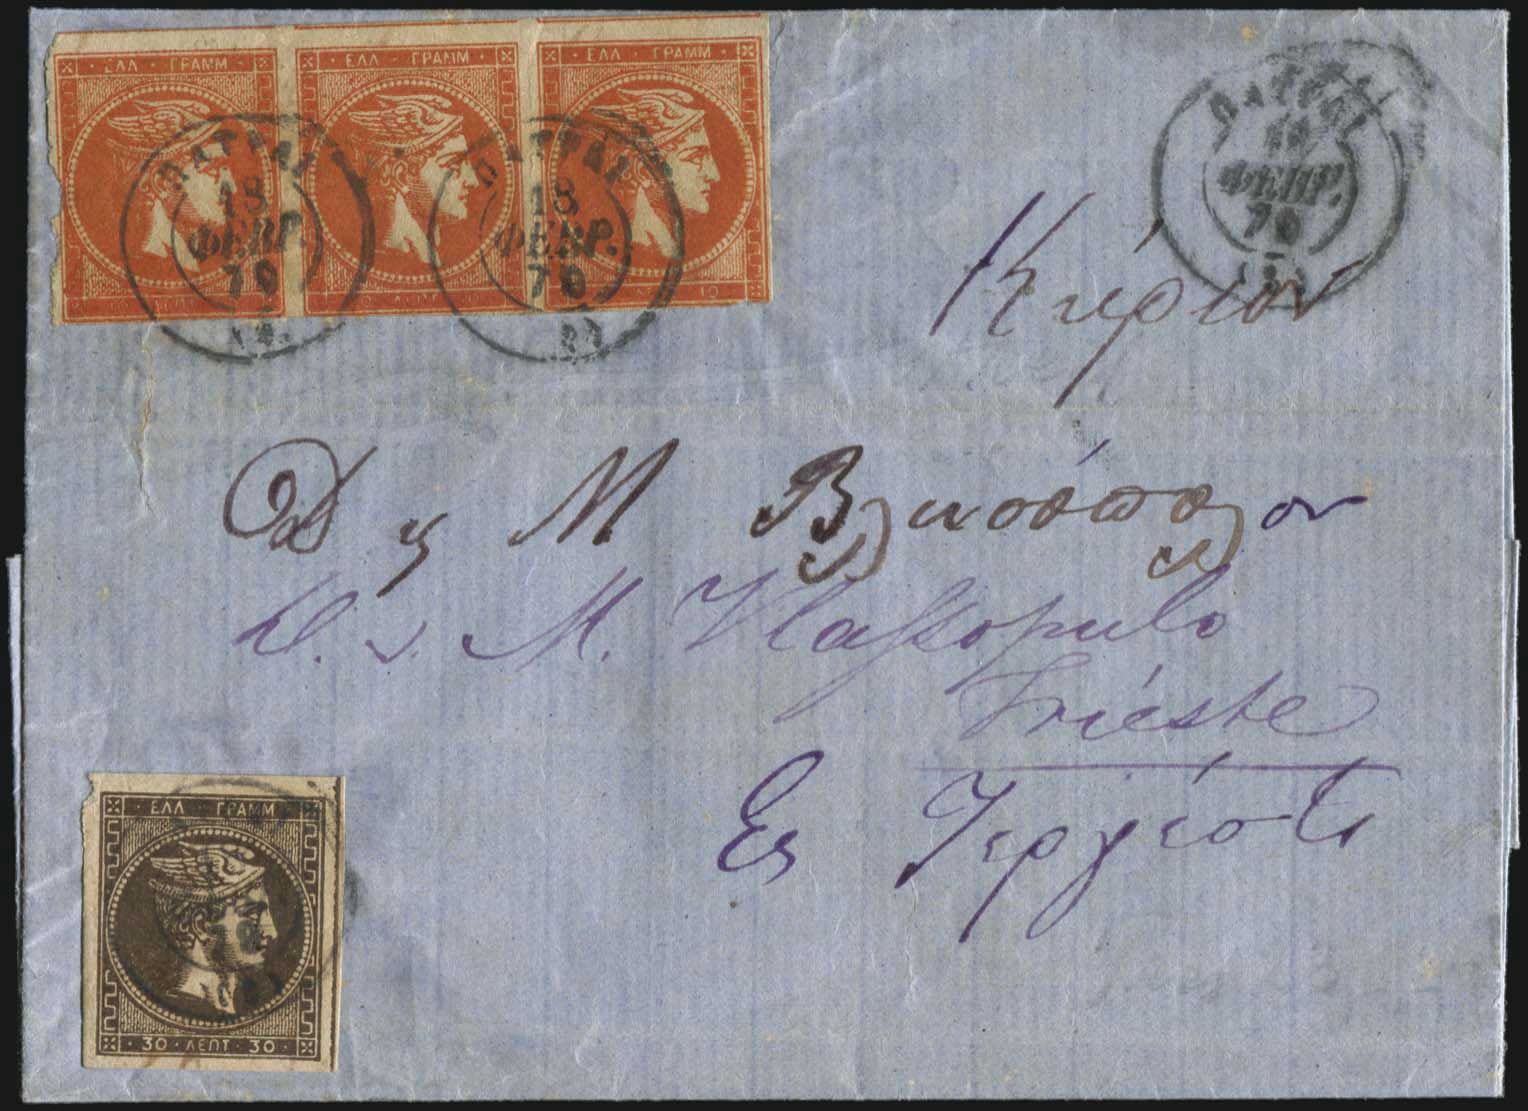 ΕΛΛ · ΓΡΑΜΜ ΕΛΛ · ΓΡΑΜΜ ΕΛΛ · ΓΡΑΜΜ
10
ΠΑΤΡΑΙ
18
ΦΕΒΡ.
70
ΠΑΤΡΑΙ
18
ΦΕΒΡ.
70
ΠΑΤΡΑΙ
18
ΦΕΒΡ.
70
Κύριον
Δ υ Μ Βλασσόπουλον
D. v. M. Vlassopulo
Trieste
Εις Τεργέστι
ΕΛΛ · ΓΡΑΜΜ
30 · ΛΕΠΤ · 30